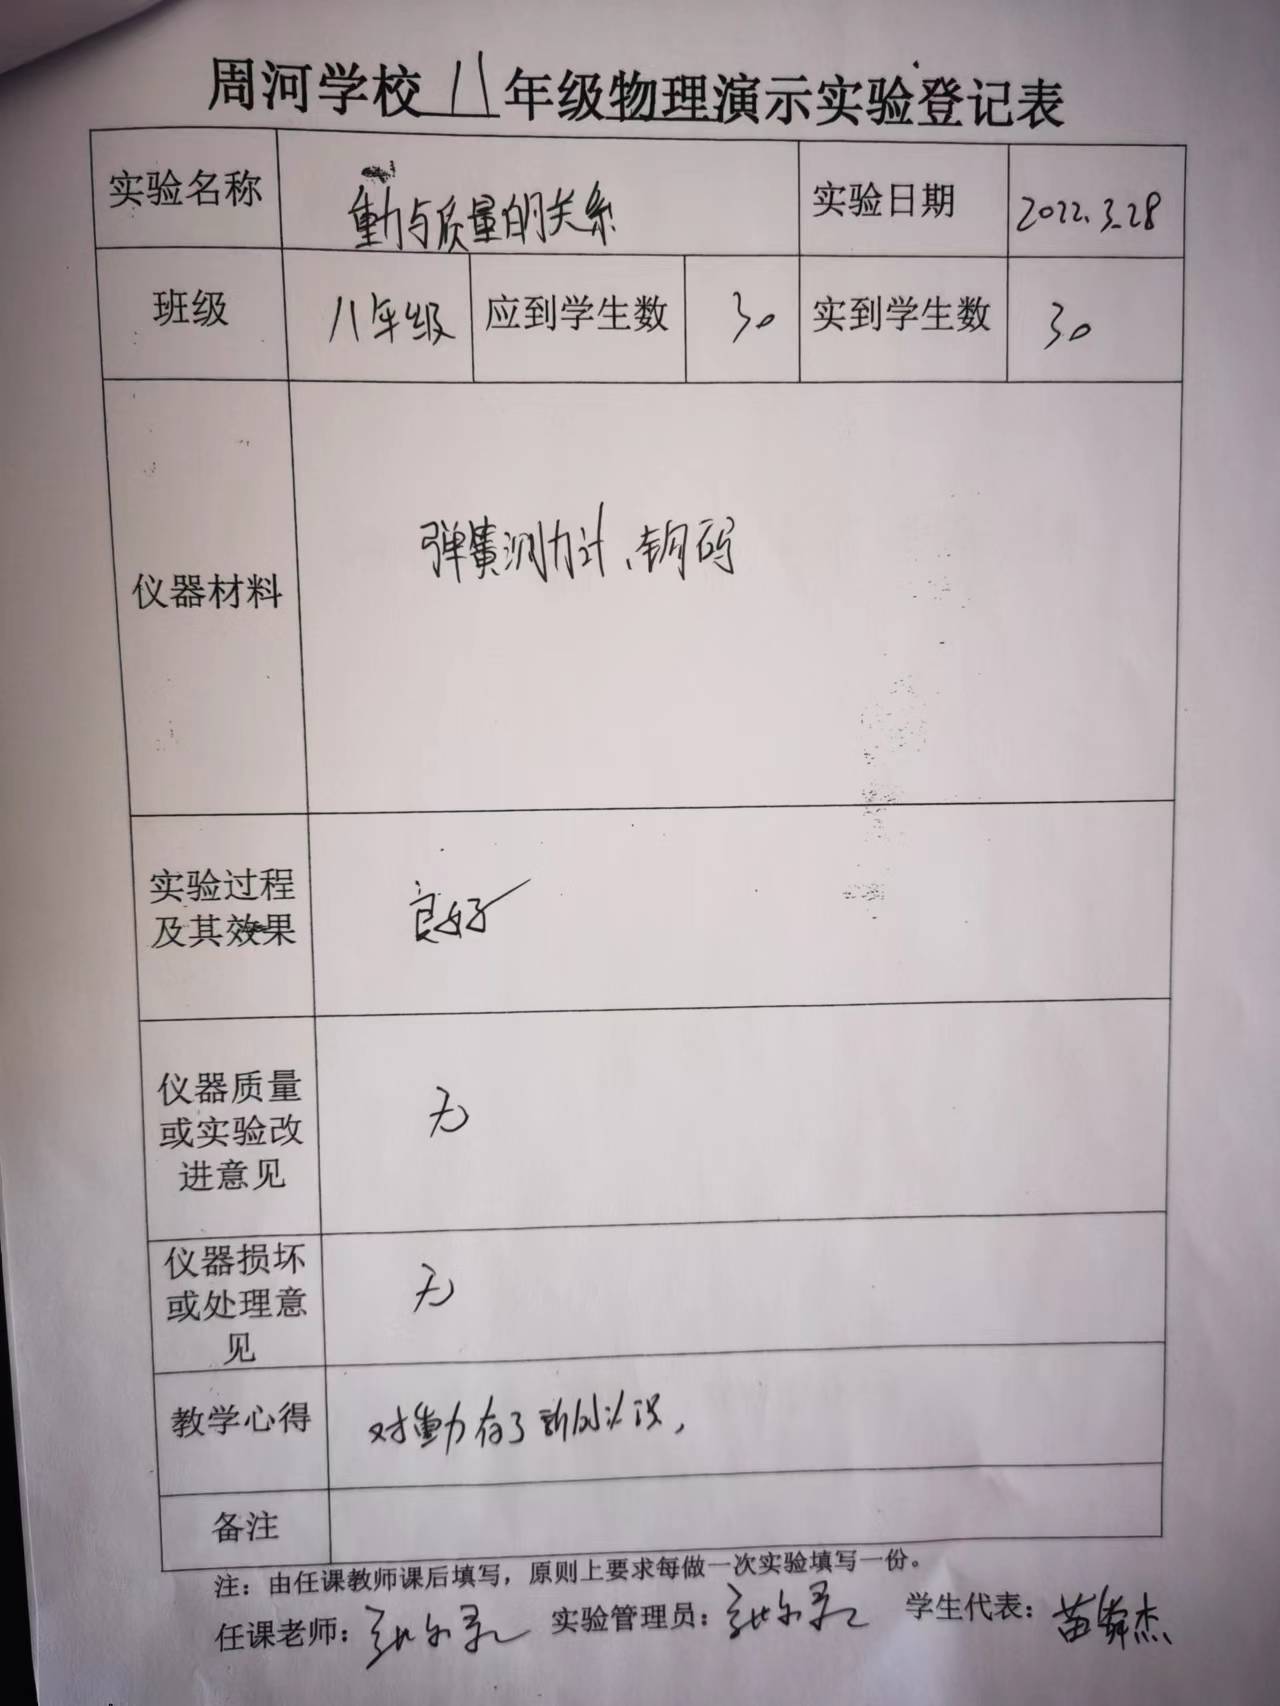 周河学校 八 年级物理演示实验登记表
实验名称 重力与质量的关系 实验日期 2022.3.28
班级 八年级 应到学生数 30 实到学生数 30
仪器材料 弹簧测力计、钩码
实验过程
及其效果 良好
仪器质量
或实验改
进意见 无
仪器损坏
或处理意
见 无
教学心得 对重力有了新的认识,
备注
注:由任课教师课后填写,原则上要求每做一次实验填写一份。
任课老师: 实验管理员: 学生代表:苗舜杰